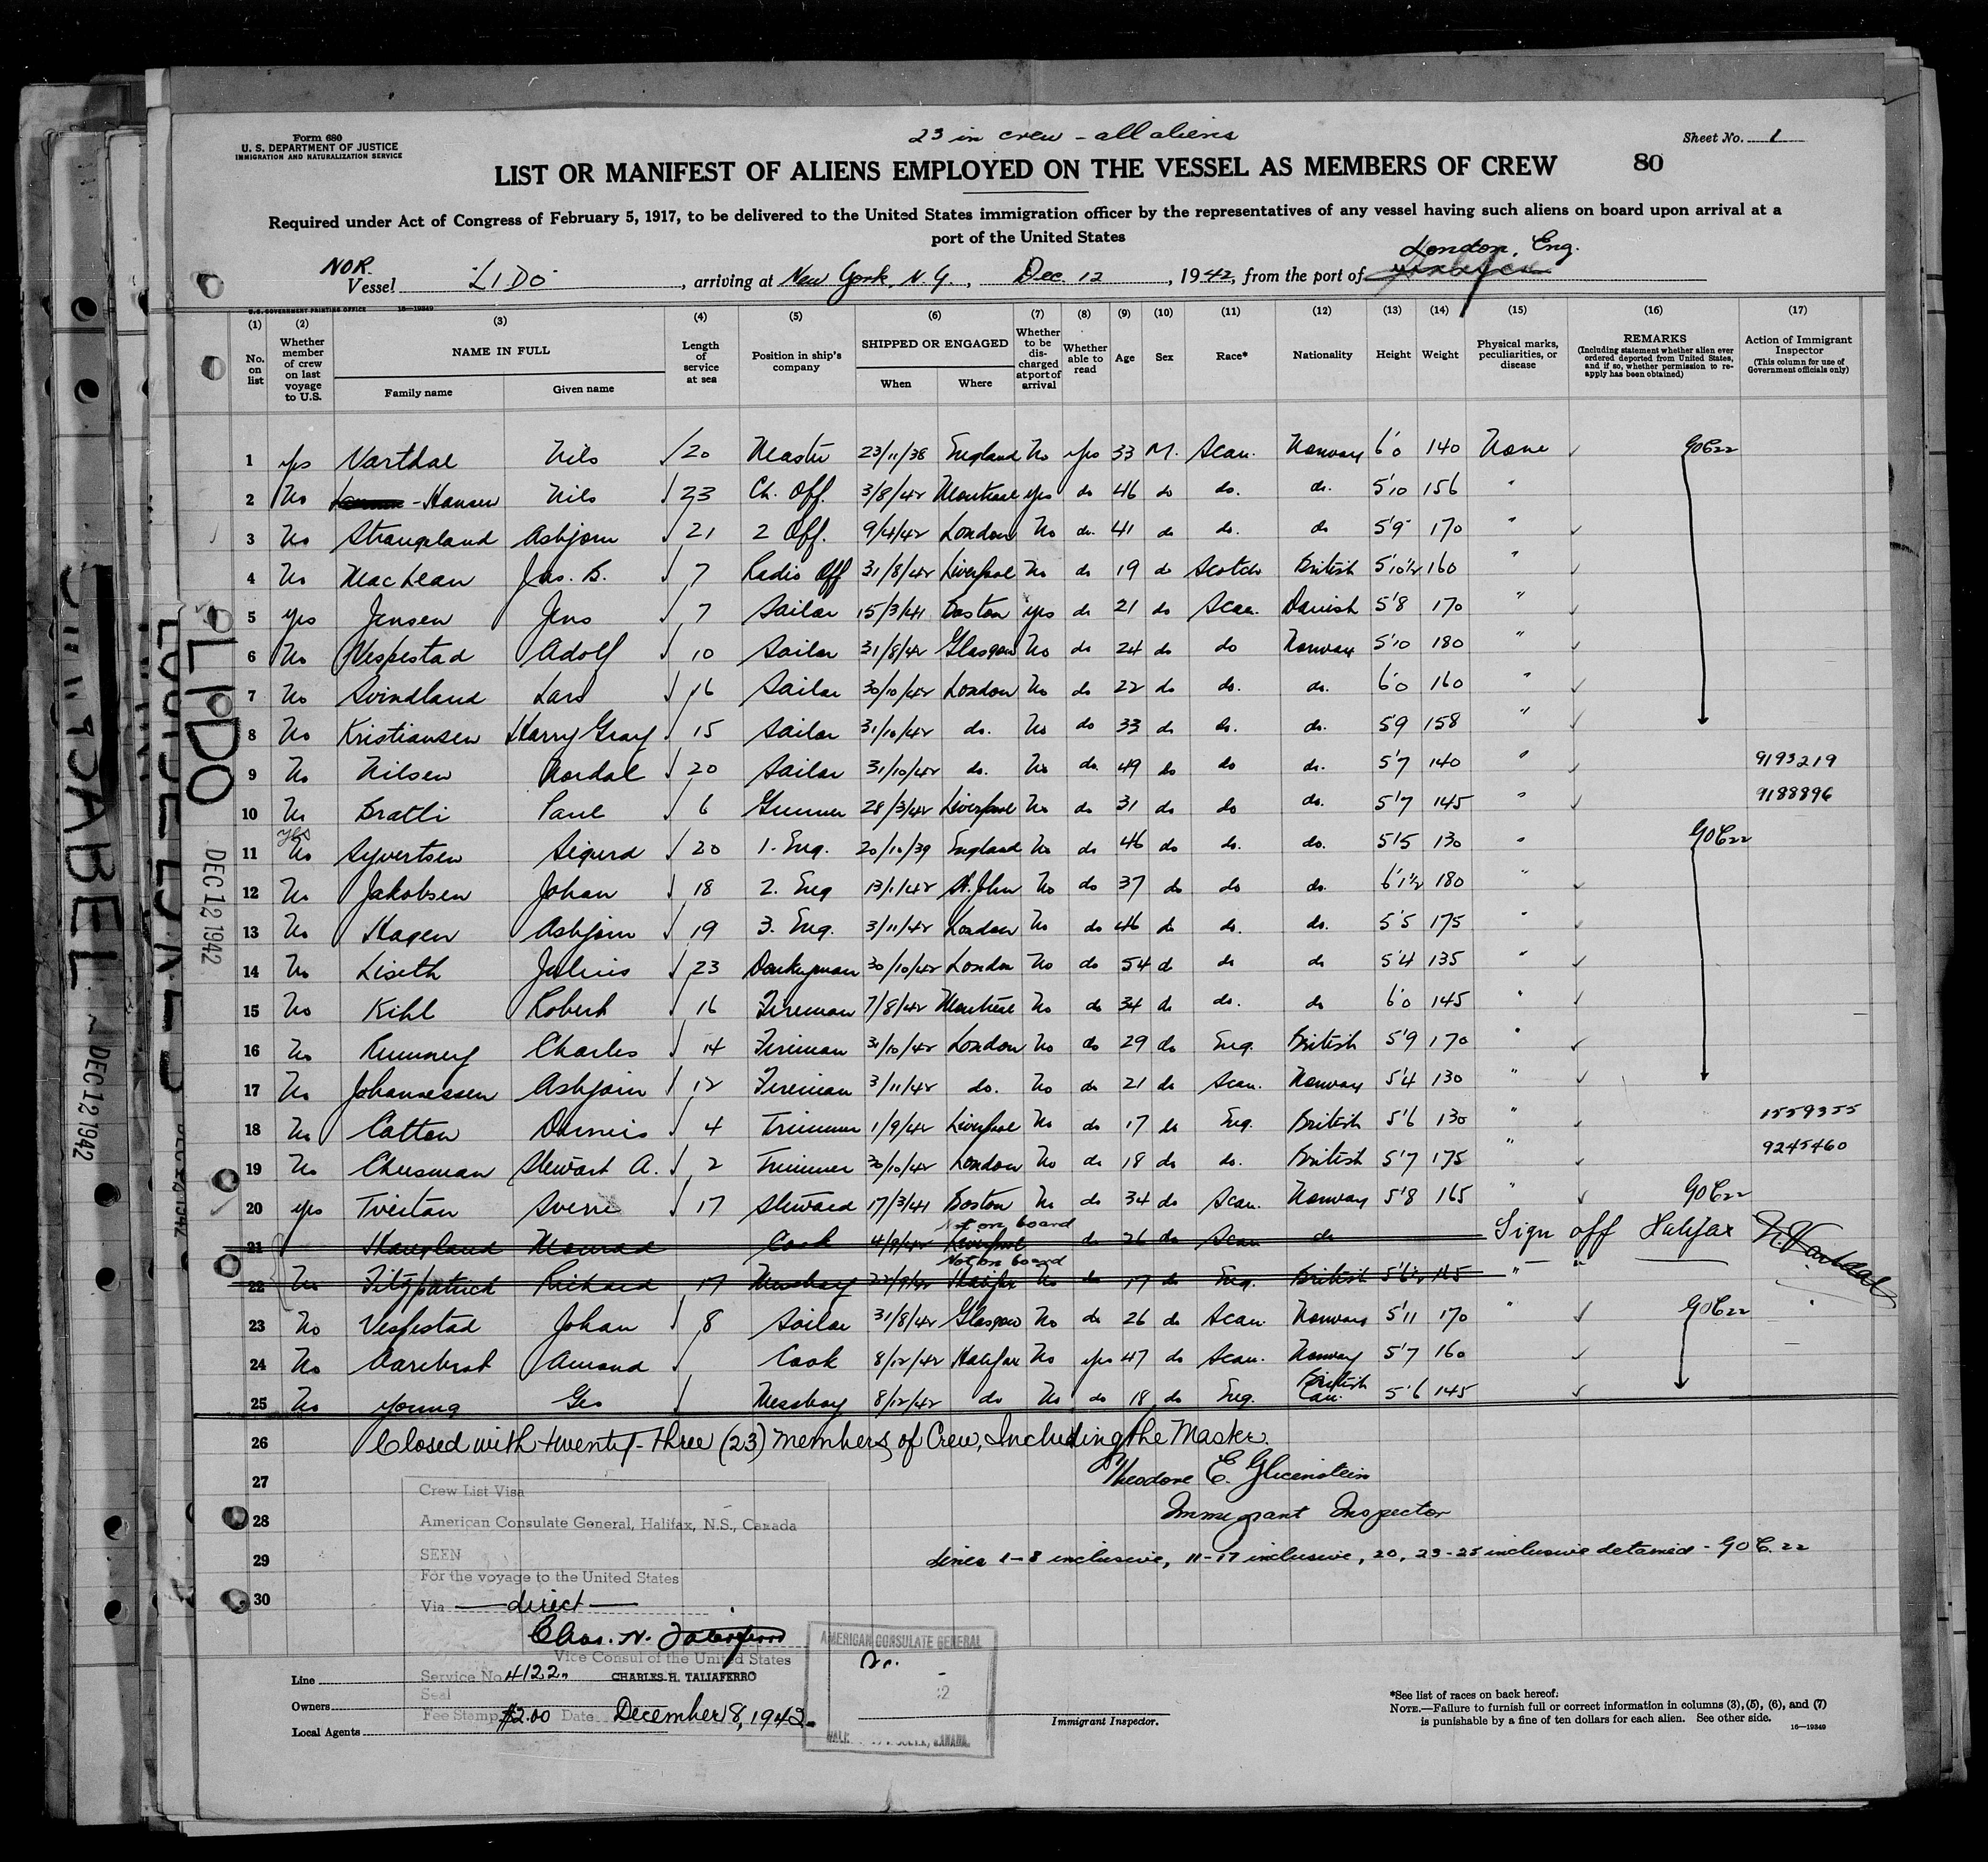 Form 680
U. S. DEPARTMENT OF JUSTICE
IMMIGRATION AND NATURALIZATION SERVICE
23 in crew - all aliens
Sheet No. 1
LIST OR MANIFEST OF ALIENS EMPLOYED ON THE VESSEL AS MEMBERS OF CREW
80
Required under Act of Congress of February 5, 1917, to be delivered to the United States immigration officer by the representatives of any vessel having such aliens on board upon arrival at a
port of the United States
London, Eng.
NOR.
Vessel "LIDO", arriving at New York, N.Y., Dec. 12, 1942, from the port of
U.S. GOVERNMENT PRINTING OFFICE 16—19349
(1) No. on list
(2) Whether member of crew on last voyage to U.S.
(3) NAME IN FULL Family name Given name
(4) Length of service at sea
(5) Position in ship's company
(6) SHIPPED OR ENGAGED When Where
(7) Whether to be discharged at port of arrival
(8) Whether able to read
(9) Age
(10) Sex
(11) Race*
(12) Nationality
(13) Height
(14) Weight
(15) Physical marks, peculiarities, or disease
(16) REMARKS (Including statement whether alien ever ordered deported from United States, and if so, whether permission to reapply has been obtained)
(17) Action of Immigrant Inspector (This column for use of Government officials only)
1 yes Vartdal Nils 20 Master 23/11/38 England No yes 33 M. Scan. Norway 6'0 140 None GOC22
2 No - Hansen Nils 23 Ch. Off. 3/8/42 Montreal yes do 46 do do. do. 5'10 156 "
3 No Strangeland Asbjorn 21 2 Off. 9/4/42 London No do. 41 do do. do 5'9 170 "
4 No MacLean Jas. B. 7 Radio Off 31/8/42 Liverpool No do 19 do Scotch British 5'10½ 160 "
5 yes Jensen Jens 7 Sailor 15/3/41 Boston yes do 21 do Scan. Danish 5'8 170 "
6 No Vespestad Adolf 10 Sailor 31/8/42 Glasgow No do 24 do do Norway 5'10 180 "
7 No Svindland Lars 16 Sailor 30/10/42 London No do 22 do do. do. 6'0 160 "
8 No Kristiansen Harry Gray 15 Sailor 31/10/42 do. No do 33 do do. do. 5'9 158 "
9 No Nilsen Nordal 20 Sailor 31/10/42 do. No do. 49 do do do. 5'7 140 " 9193219
10 No Bratli Paul 6 Gunner 28/3/42 Liverpool No do 31 do do do. 5'7 145 " 9188896
11 yes No Syvertsen Sigurd 20 1. Eng. 20/10/39 England No do 46 do do. do. 5'5 130 " GOC22
12 No Jakobsen Johan 18 2. Eng 13/1/42 St. John No do 37 do do do. 6'1½ 180 "
13 No Hagen Asbjorn 19 3. Eng. 3/11/42 London No do 46 do do. do. 5'5 175 "
14 No Liseth Julius 23 Donkeyman 30/10/42 London No do 54 do do do 5'4 135 "
15 No Kihl Robert 16 Fireman 7/8/42 Montreal No do 34 do do. do 6'0 145 "
16 No Rumney Charles 14 Fireman 31/10/42 London No do 29 do Eng. British 5'9 170 "
17 No Johannessen Asbjorn 12 Fireman 3/11/42 do. No do 21 do Scan. Norway 5'4 130 "
18 No Catton Dennis 4 Trimmer 1/9/42 Liverpool No do 17 do Eng. British 5'6 130 " 1559355
19 No Cheesman Stewart A. 2 Trimmer 30/10/42 London No do 18 do do. British 5'7 175 " 9245460
20 yes Tveitan Sverre 17 Steward 17/3/41 Boston No do 34 do Scan. Norway 5'8 165 " GOC22
Not on board
21 Haugland Konrad Cook 4/9/42 Liverpool do 26 do Scan do Sign off Halifax N. Vartdal
Not on board
22 No Fitzpatrick Richard 17 Messboy 22/9/42 Halifax No do 17 do Eng. British 5'6½ 165 " "
23 No Vespestad Johan 8 Sailor 31/8/42 Glasgow No do 26 do Scan Norway 5'11 170 " GOC22
24 No Aarebrot Amund Cook 8/12/42 Halifax No yes 47 do Scan. Norway 5'7 160
25 No Young Geo Messboy 8/12/42 do No do 18 do Eng. British Can. 5'6 145
26 Closed with twenty-three (23) members of Crew, Including the Master.
27 Theodore E. Glicenstein
28 Immigrant Inspector
29 Lines 1-8 inclusive, 11-17 inclusive, 20, 23-25 inclusive detained - GOC. 22
30
Crew List Visa
American Consulate General, Halifax, N.S., Canada
SEEN
For the voyage to the United States
Via —direct—
Chas. H. Taliaferro
Vice Consul of the United States
Service No. 4122. CHARLES H. TALIAFERRO
Seal
Fee Stamp $2.00 Date December 8, 1942.
AMERICAN CONSULATE GENERAL
Line
Owners
Local Agents
Immigrant Inspector.
*See list of races on back hereof.
NOTE.—Failure to furnish full or correct information in columns (3), (5), (6), and (7)
is punishable by a fine of ten dollars for each alien. See other side.
16—19349
LIDO
DEC 12 1942
DEC 12 1942